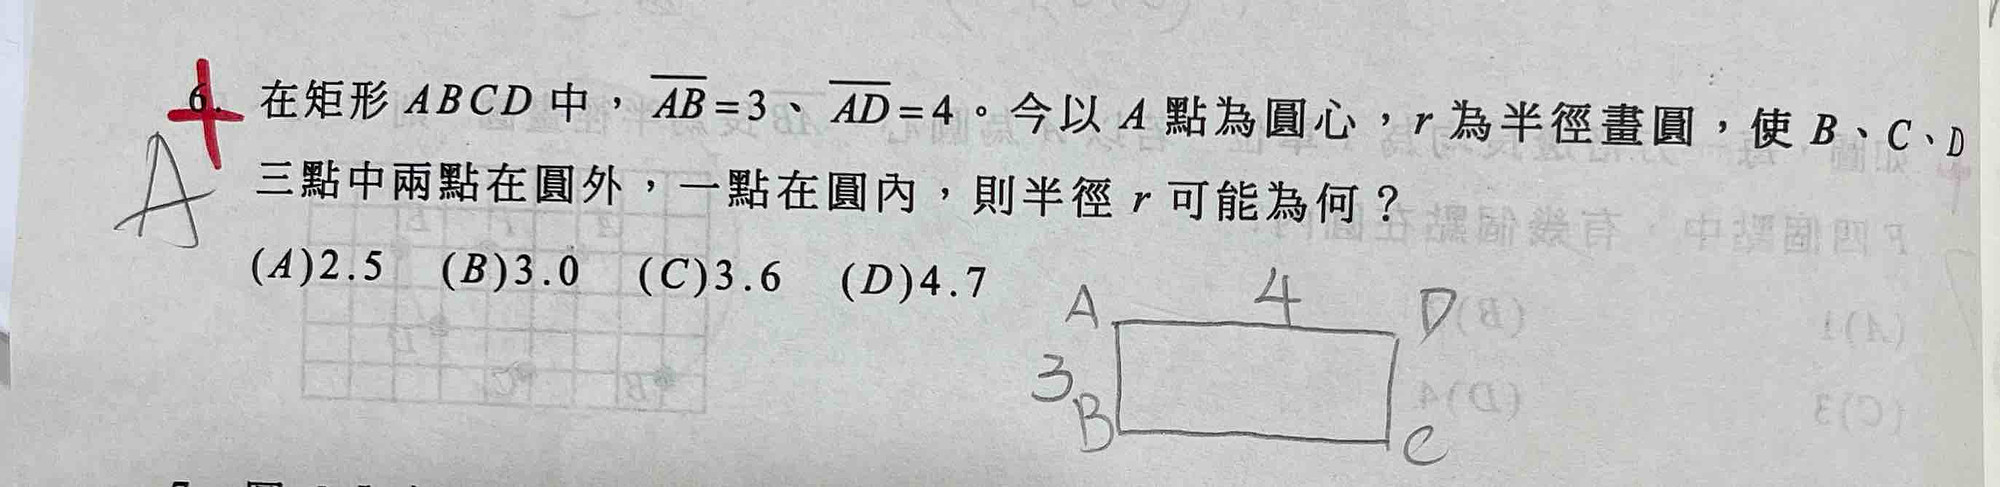 6. 在矩形 ABCD 中，AB=3、AD=4。今以 A 點為圓心，r 為半徑畫圓，使 B、C、D
A
三點中兩點在圓外，一點在圓內，則半徑 r 可能為何？
(A)2.5 (B)3.0 (C)3.6 (D)4.7
A 4 D
3
B C